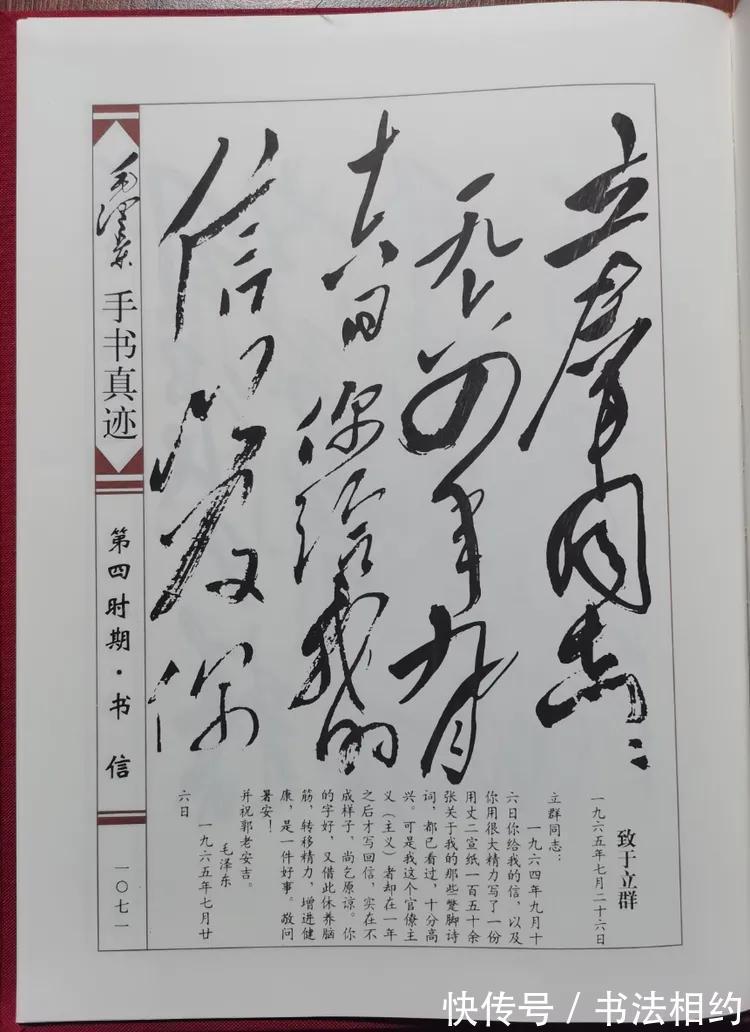 立群同志：
一九六四年九月
十六日你给我的
信，以及你
致于立群
一九六五年七月二十六日
立群同志：
一九六四年九月十
六日你给我的信，以及
你用很大精力写了一份
用丈二宣纸一百五十余
张关于我的那些蹩脚诗
词，都已看过，十分高
兴。可是我这个官僚主
义（主义）者却在一年
之后才写回信，实在不
成样子，尚乞原谅。你
的字好，又借此休养脑
筋，转移精力，增进健
康，是一件好事。敬问
暑安！
并祝郭老安吉。
毛泽东
一九六五年七月廿
六日
毛泽东
手书真迹
第四时期·书 信
一〇七一
快传号 / 书法相约